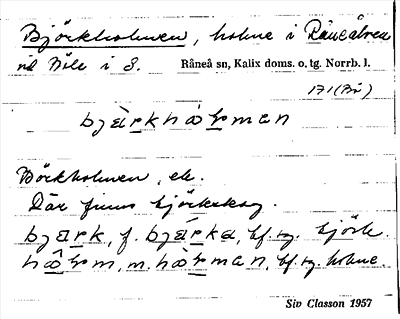 Björkholmen, holme i Råneälven
vid Böle i S. Råneå sn, Kalix doms. o. tg. Norrb. l.
171 (Bö)
bjàrkhòɫmen
Börkholmen, ek.
Där finns björkskog.
bjark, f. bjárka, bf. sg. björk.
hɑ̂ɫm, m. hòɫmen, bf. sg. holme.
Siv Classon 1957